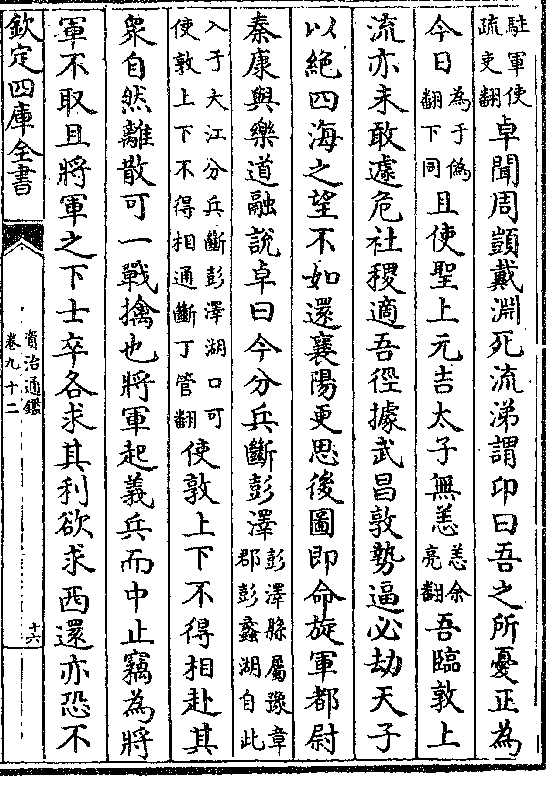 駐軍使疏吏翻卓聞周顗戴淵死流涕謂卬曰吾之所憂正為
今日為于偽翻下同且使聖上元吉太子無恙恙余亮翻吾臨敦上
流亦未敢遽危社稷適吾徑據武昌敦勢逼必劫天子
以絶四海之望不如還襄陽更思後圖即命旋軍都尉
秦康與樂道融說卓曰今分兵斷彭澤彭澤縣屬豫章郡彭蠡湖自此
入于大江分兵斷彭澤湖口可使敦上下不得相通斷丁管翻使敦上下不得相赴其
衆自然離散可一戰擒也將軍起義兵而中止竊為將
軍不取且將軍之下士卒各求其利欲求西還亦恐不
欽定四庫全書
資治通鑑
卷九十二
十六